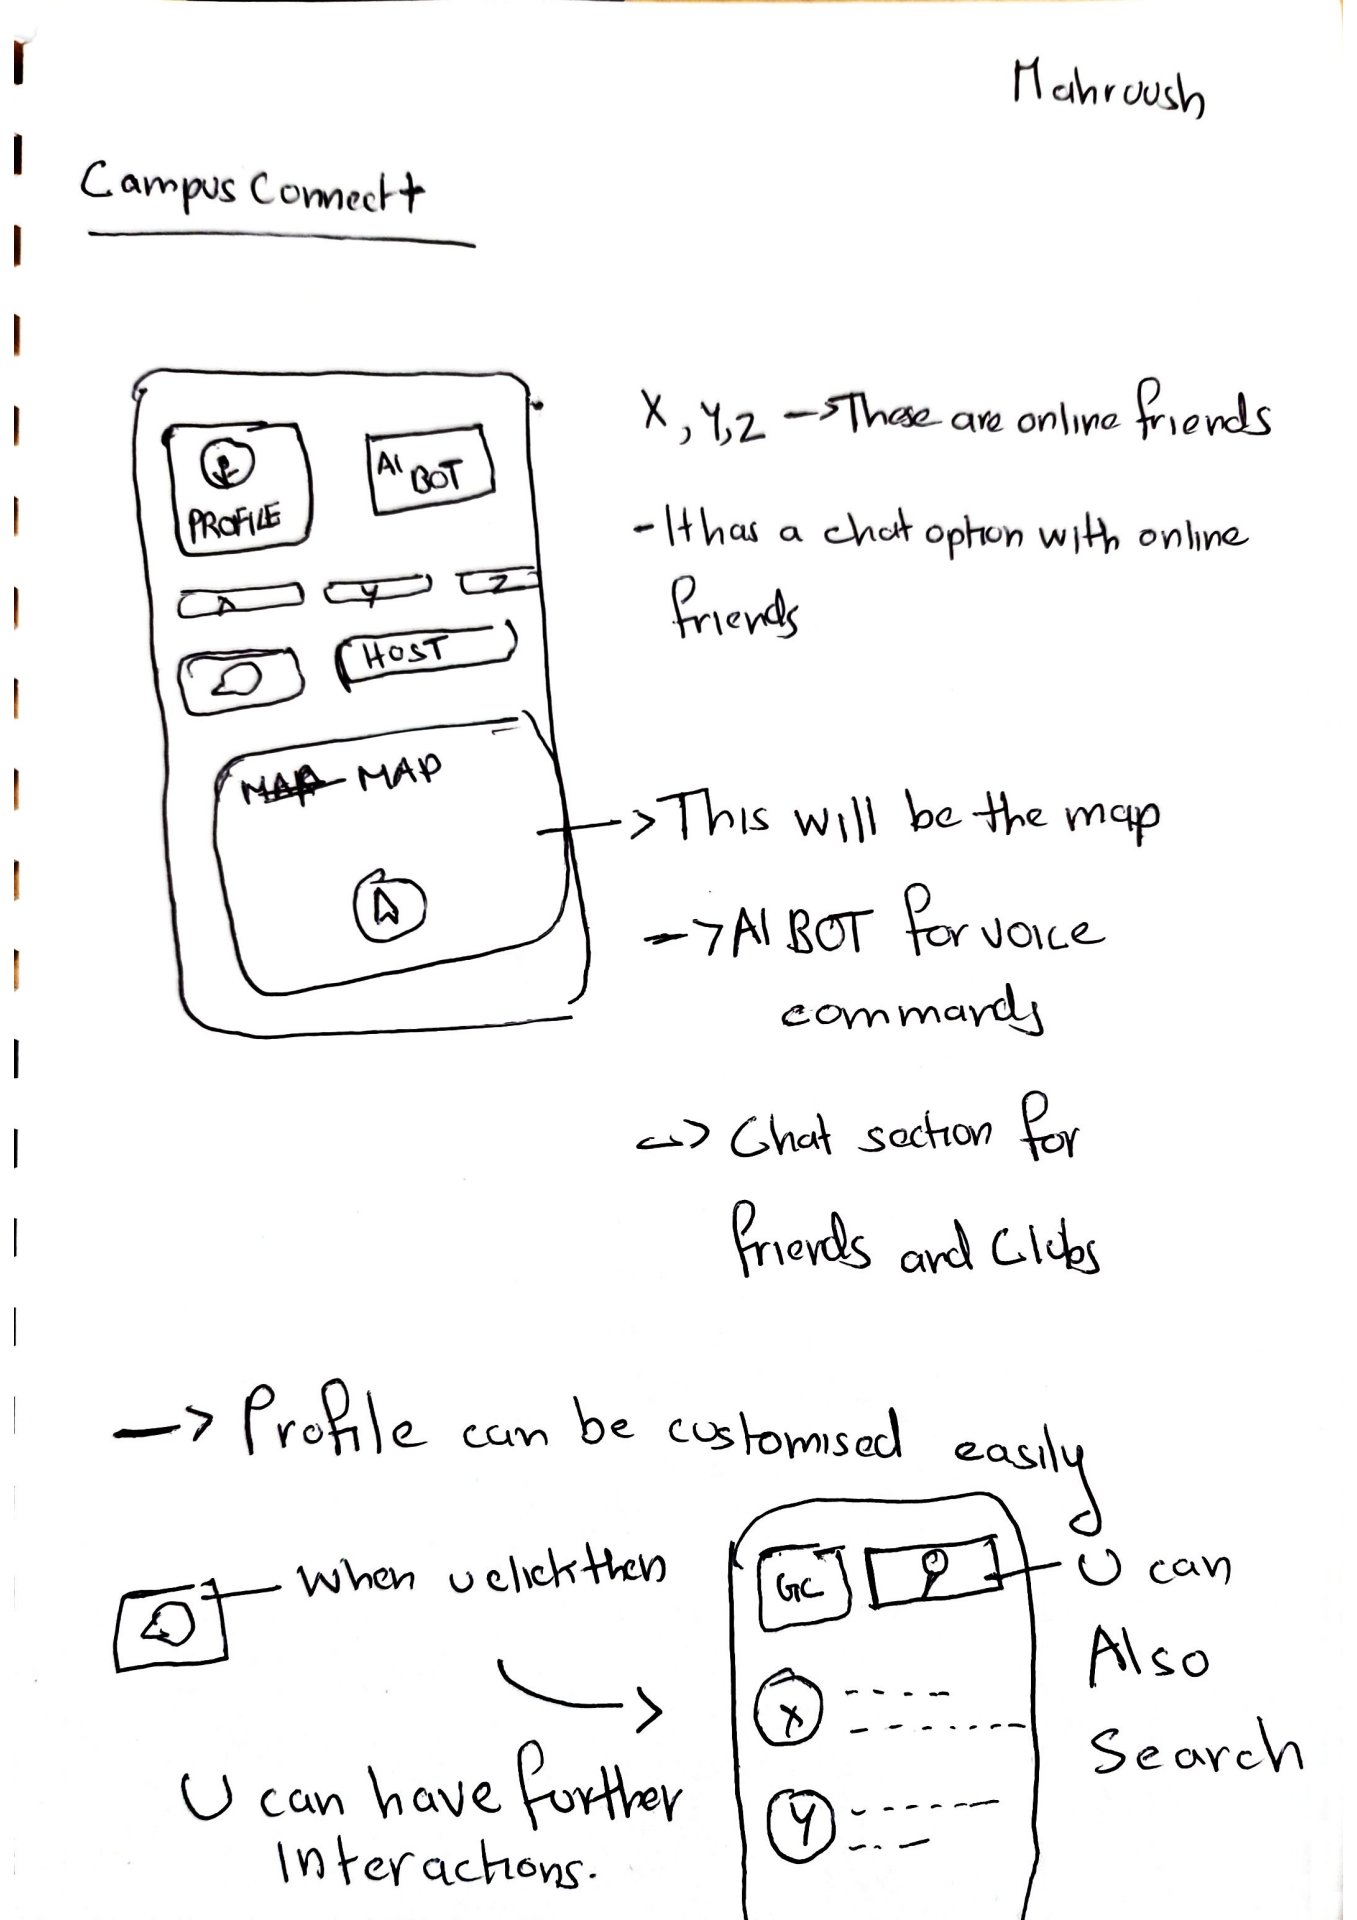 Mahroosh
Campus Connect
PROFILE
AI BOT
X Y Z
HOST
MAP
X, Y, Z → These are online friends
- It has a chat option with online
friends
→ This will be the map
→ AI BOT for voice
commands
→ Chat section for
friends and Clubs
→ Profile can be customised easily
When u click then
U can have further
Interactions.
GC
X
Y
U can
Also
Search